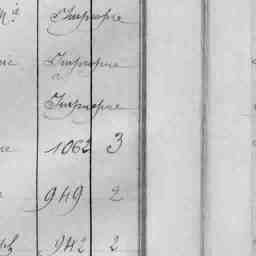 Impropre
Impropre
Impropre
1062 3
949 2
942 2